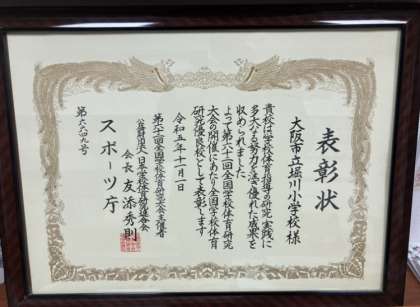 表彰状
大阪市立堀川小学校様
貴校は学校体育指導の研究実践に
多大なる努力を注ぎ優れた成果を
収められました
よって第六十二回全国学校体育研究
大会の開催にあたり全国学校体育
研究優良校として表彰します
令和五年十一月一日
第六十二回全国学校体育研究大会主催者
公益財団法人日本学校体育研究連合会
会長 友添秀則
スポーツ庁
第六六四九号